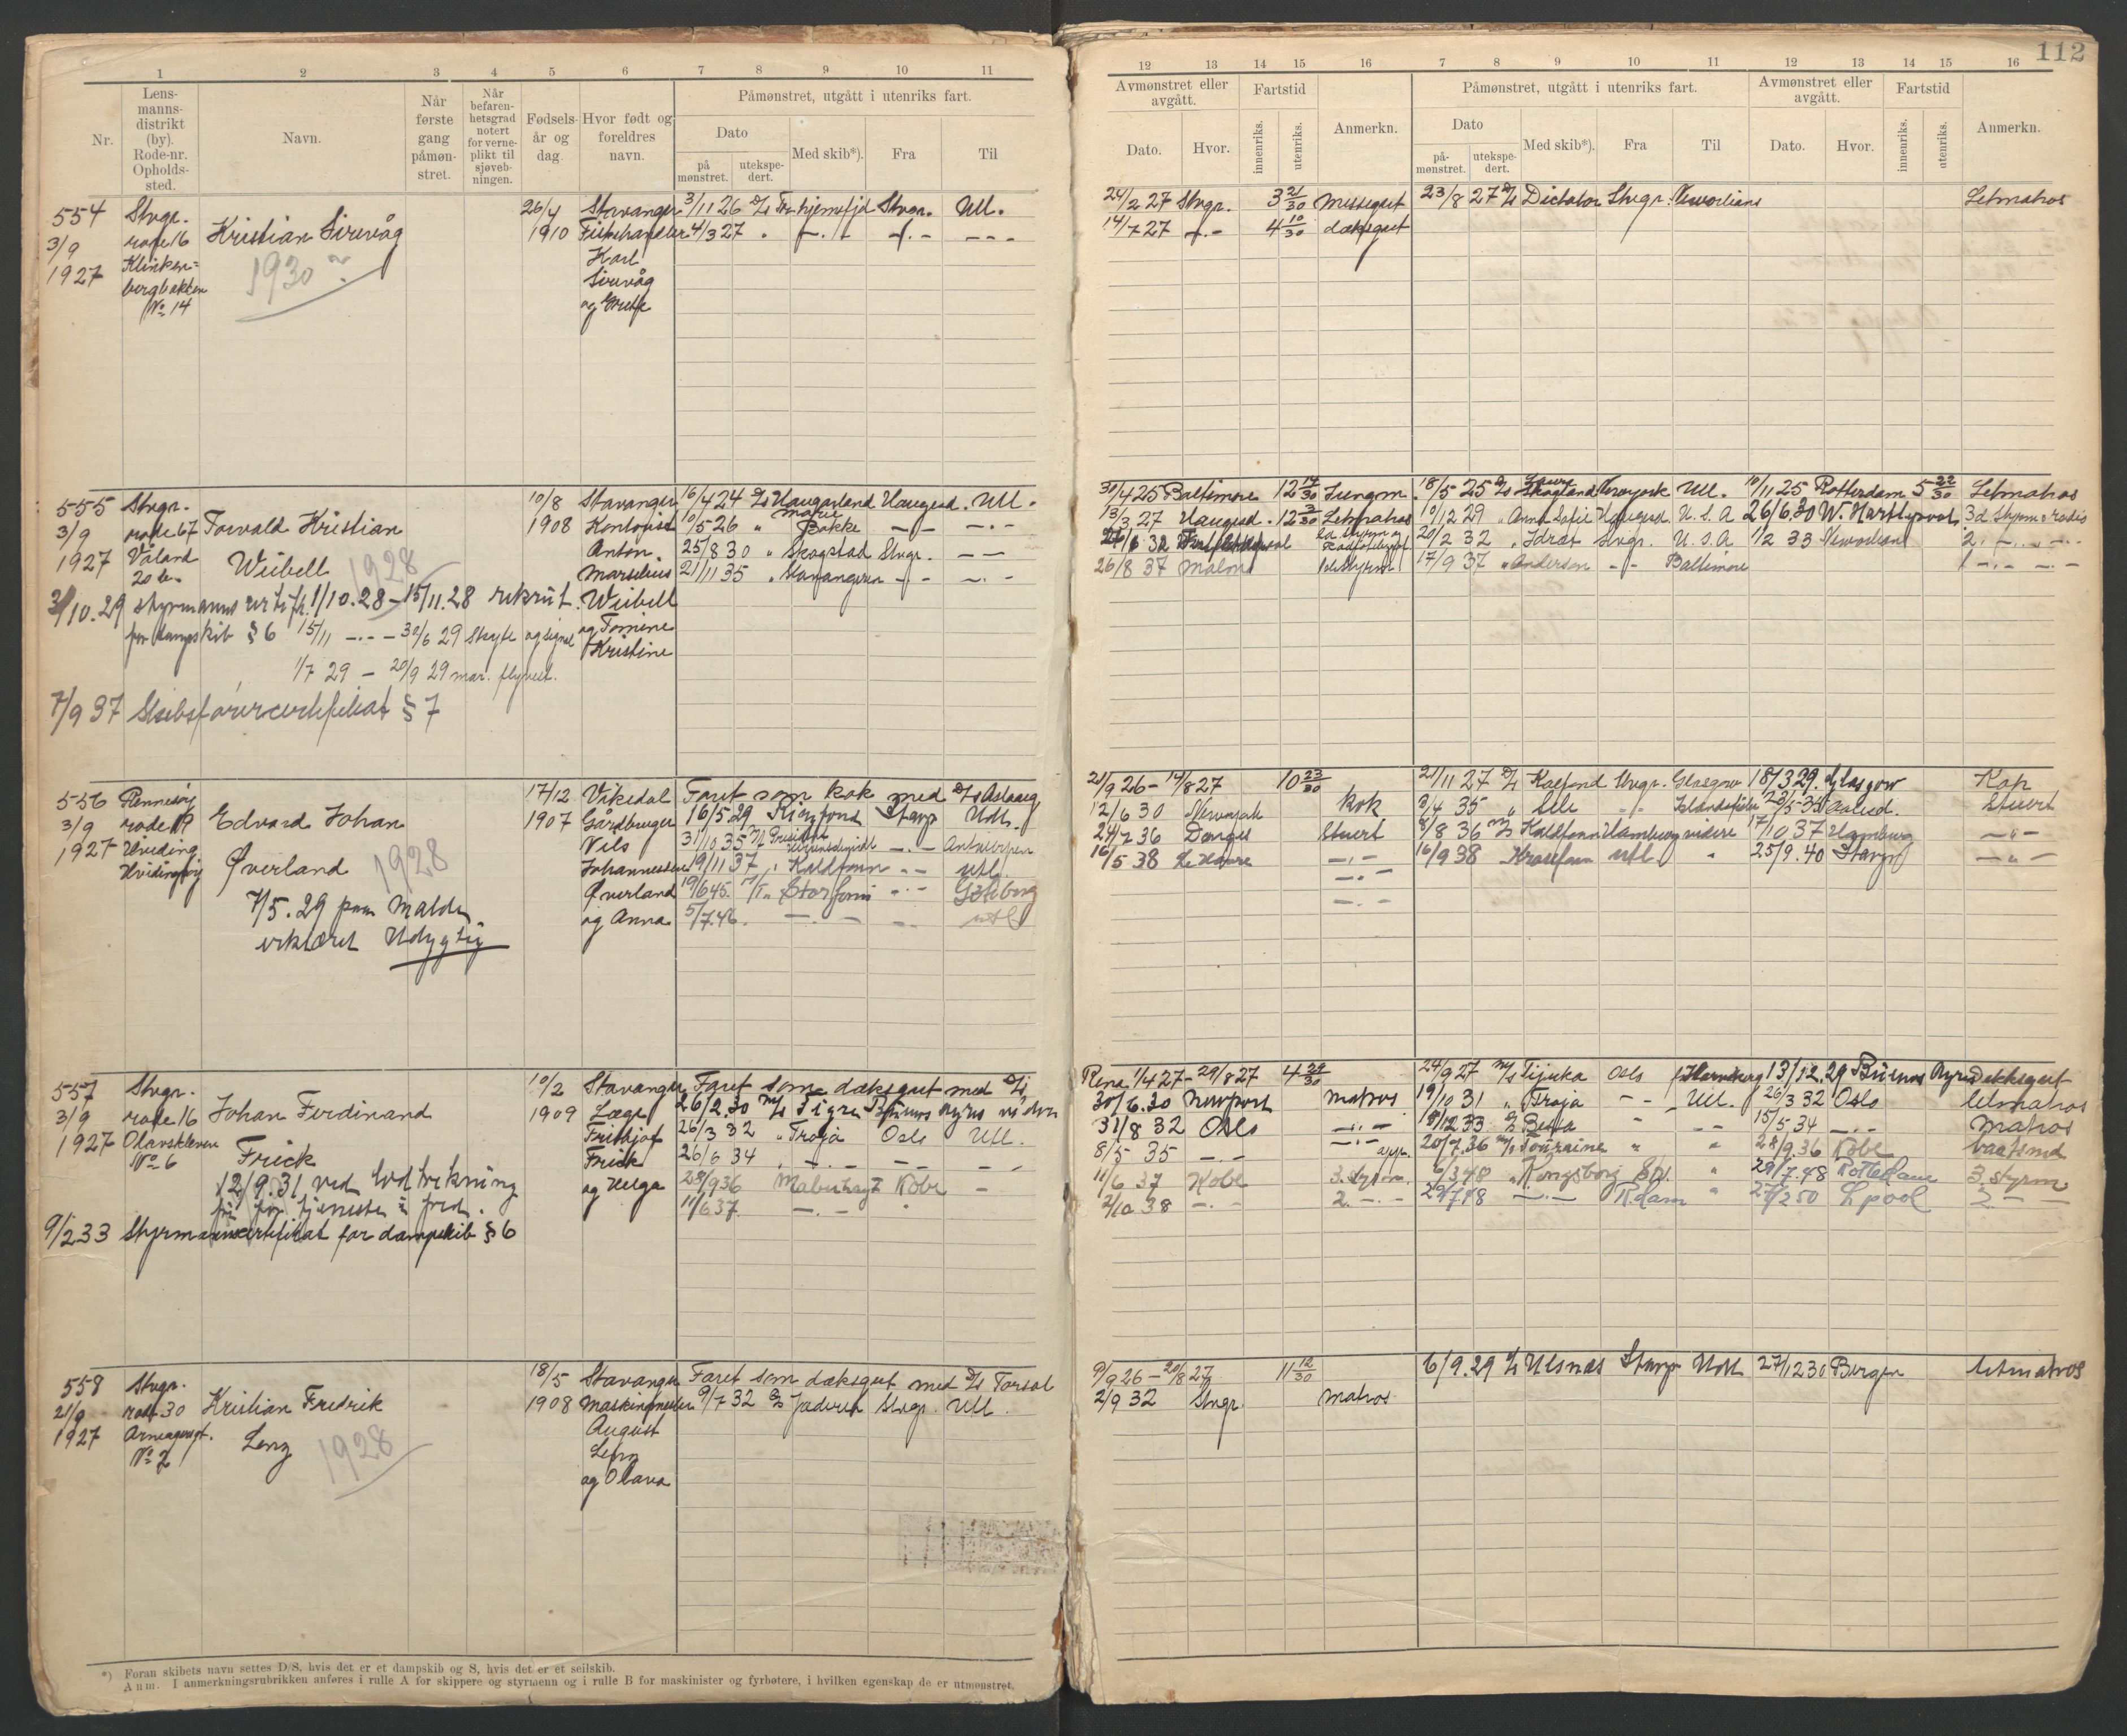 112
1 2 3 4 5 6 7 8 9 10 11
Nr.
Lens-
manns-
distrikt
(by).
Rode-nr.
Opholds-
sted.
Navn.
Når
første
gang
påmøn-
stret.
Når
befaren-
hetsgrad
notert
for verne-
plikt til
sjøveb-
ningen.
Fødsels-
år og
dag.
Hvor født og
foreldres
navn.
Påmønstret, utgått i utenriks fart.
Dato
på
mønstret.
utekspe-
dert.
Med skib*).
Fra
Til
554 Stvgr. Kristian Sirevåg 26/4 Stavanger 3/11 26 Stvgr. Utl.
3/9 rode 16 1910 Fiskehandler 4/3 27 " —.— —.— —.—
1927 Klinken- 1930 Karl
bergbakken Sirevåg
No 14 og Grethe
555 Stvgr. Torvald Kristian 10/8 Stavanger 16/4 24 D/s Haugarland Haugesd. Utl.
3/9 rode 67 1908 Kontorist 10/5 26 " Marie Bakke —.— —.—
1927 Våland Weibell 1928 Anton 25/8 30 " Skogstad Stvgr. —.—
20 b. Marselius 21/11 35 " Stavangeren —.— —.—
31/10.29 styrmannscertifk. 1/10.28 – 15/11.28 rekrut. Weibell
for dampskib § 6 15/11 —.— 30/6 29 Skyte og signal og Tomine
Kristine
1/7 29 – 20/9 29 mar. flyvev.
7/9 37 Skibsførercertifikat § 7
556 Rennesøy Edvard Johan 17/12 Vikedal Faret som kok med D/s Aslaug
3/9 rode 19 1907 Gårdbruger 16/5 29 Ringfond Stavgr Utl.
1927 Hviding Øverland 1928 Nils 31/10 35 —.— Antwerpen
Hvidingsøy Johannessen 19/11 37 " Kaldfonn —.— utl.
Øverland 19/6 45. M/T. Storfonn —.— Gøteborg
7/5. 29 paa Malde og Anna 5/7.46. —.— —.— utl
erklæret Udygtig
557 Stvgr. Johan Ferdinand 10/2 Stavanger Faret som dæksgut med D/s
3/9 rode 16 1909 Læge 26/2.30 M/s Tigre Buenos Ayres
1927 Olavskleven Frick Frithjof 26/3 32 " Troja Oslo Utl.
No 6 Frick 26/6 34 " —.— —.— —.—
12/9.31 ved lodtrekning og Helga 28/9 36 Kobe —
fri for tjeneste i fred. 11/6 37. —.— "
9/2 33 Styrmannscertifikat for dampskib § 6
558 Stvgr. Kristian Fredrik 18/5 Stavanger Faret som dæksgut med D/s Torsol
21/9 rode 30 1908 Maskinmester 9/7 32 D/s Jæderen Stvgr. Utl.
1927 Lenz 1928 August
No 2 Lenz
og Olava
*) Foran skibets navn settes D/S, hvis det er et dampskib og S, hvis det er et seilskib.
Anm. I anmerkningsrubrikken anføres i rulle A for skippere og styrmenn og i rulle B for maskinister og fyrbøtere, i hvilken egenskap de er utmønstret.
12 13 14 15 16 7 8 9 10 11 12 13 14 15 16
Avmønstret eller
avgått.
Fartstid
Dato.
Hvor.
innenriks.
utenriks.
Anmerkn.
Påmønstret, utgått i utenriks fart.
Dato
på-
mønstret.
utekspe-
dert.
Med skib*).
Fra
Til
Avmønstret eller
avgått.
Dato.
Hvor.
Fartstid
innenriks.
utenriks.
Anmerkn.
24/2 27 Stvgr. 3 21/30 Messegut 23/8 27 D/s Dictator Stvgr. Neworlians Letmatros
14/7 27 —.— 4 10/30 dæksgut
30/4 25 Baltimore 12 14/30 Jungm. 18/5 25 D/s Skogland Newyork Utl. 10/11 25 Rotterdam 5 22/30 Letmatros
13/3 27 Haugesd. 12 3/30 Letmatros 10/12 29 " Anna Sofie Haugesd. U.S.A 26/6.30 W. Hartlepool 3d Styrm o radio
20/2 32 " Idræt Stvgr. U.S.A 1/2 33 Neworlians 2. —.—
26/8 37 Malmø 1ststyrm 17/9 37 " Anderson —.— Baltimore 1 —.— —.—
21/9 26 – 14/8 27 10 23/30 21/11 27 D/s Stvgr. Glasgow 18/3 29. Glasgow Kok
12/6 30 Kok 3/4 35 " —.— Aalesd. Stuert
24/7 36 Stuert 8/8 36 M/s Kaldfonn Hamburg videre 17/10 37 Hamburg —"—
16/5 38 Le Havre —.— 16/9 38 utl " 25/9.40 Stavgr —"—
—.—
—.—
Rena 1/4 27 – 29/8 27 4 29/30 24/9 27 M/s Tijuca Oslo 13/12.29 Buenos Ayres Dekksgut
30/6.30 Newport Matros 19/10 31 " Troja —.— Utl. 26/3 32 Oslo Letmatros
31/8 32 Oslo —.— 18/12 33 " " —.— 15/5 34 —.— Matros
8/5 35 —.— —.— 20/7.36 M/s Touraine " " 28/9.36 Kobe baatsmd
11/6 37 Kobe 3. styrm. 6/3 48 " Kongsborg " 29/7.48 Rotterdam 3. styrm
2/10 38 —.— 2. —.— 29/7 48 —.— R.dam " 27/2 50 L.pool 2. —
9/9 26 – 20/8 27 11 12/30 6/9.29 D/s Ulsnes Stavgr Utl. 27/12 30 Bergen Letmatros
2/9 32 Stvgr. Matros